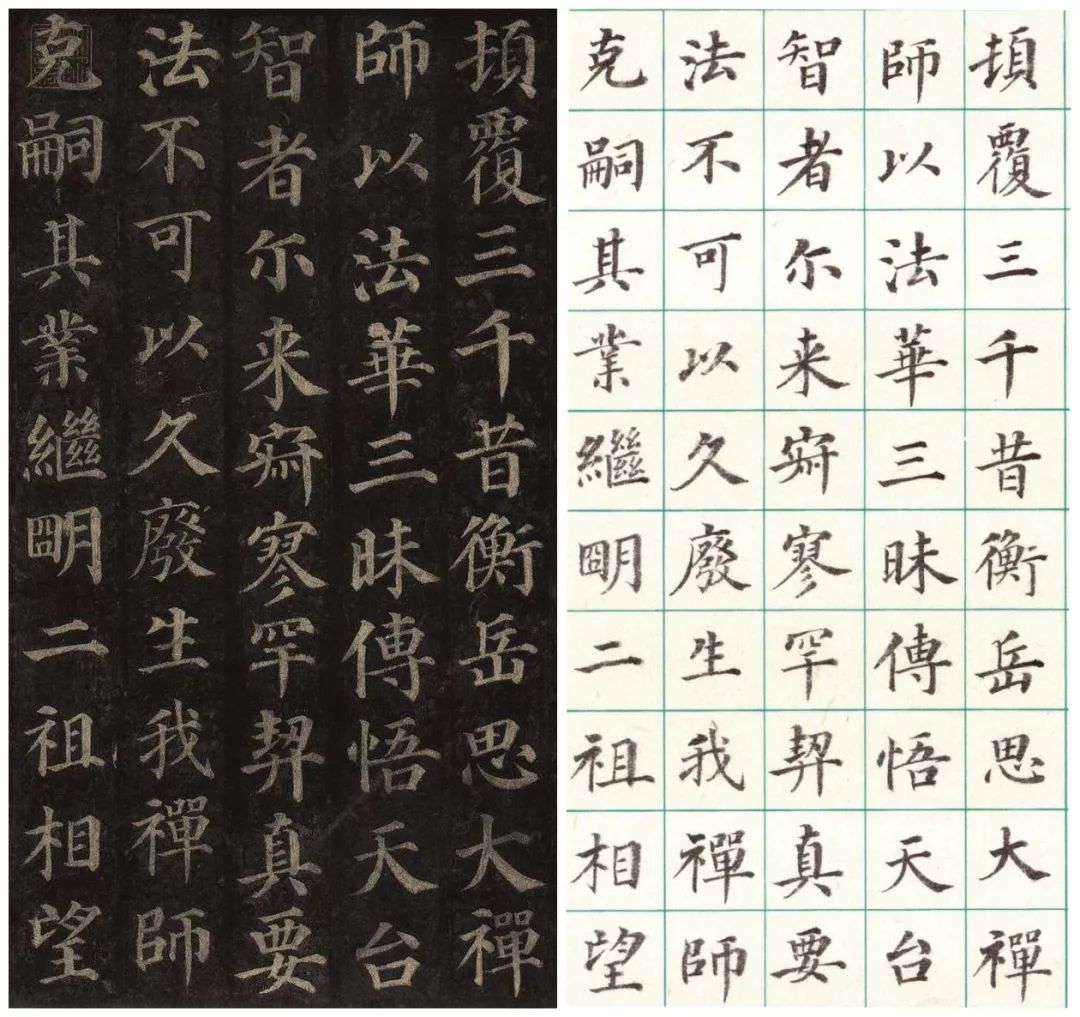 頂覆三千昔衡岳思大禪
師以法華三昧傳悟天台
智者尔来寂寥罕契真要
法不可以久廢生我禪師
克嗣其業繼朙二祖相望
頂覆三千昔衡岳思大禪
師以法華三昧傳悟天台
智者尔来寂寥罕契真要
法不可以久廢生我禪師
克嗣其業繼朙二祖相望